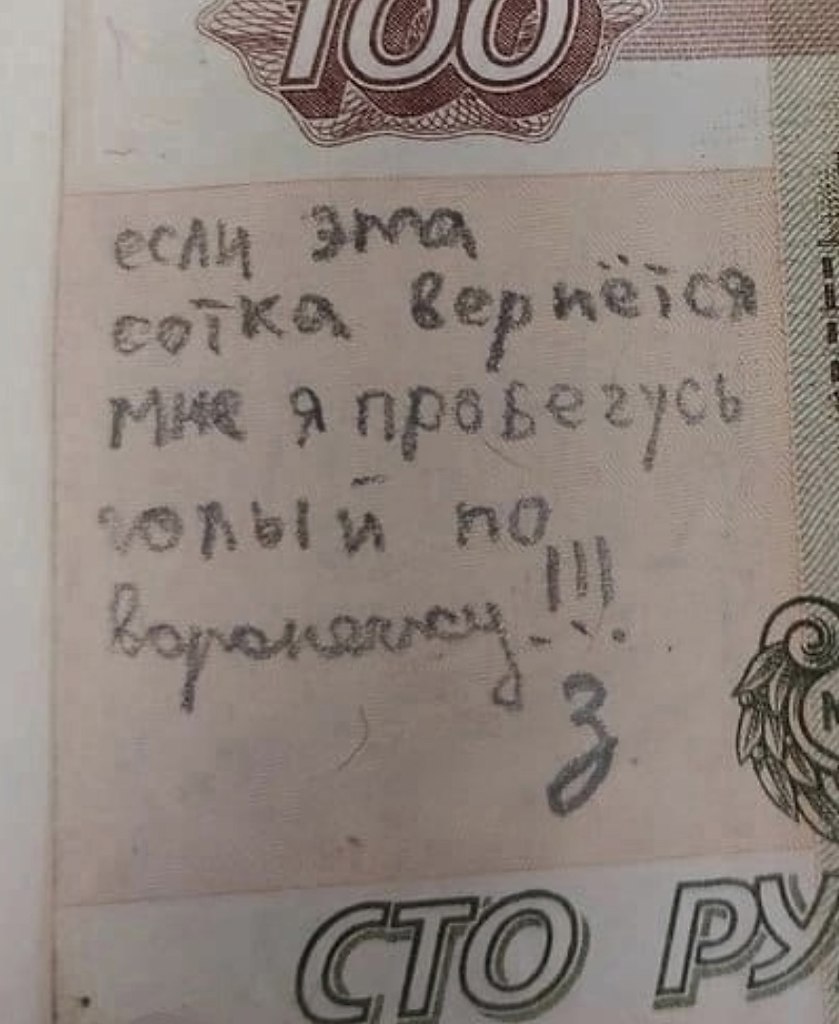 100
если эта
сотка вернётся
мне я пробегусь
голый по
!!!
3
СТО РУ